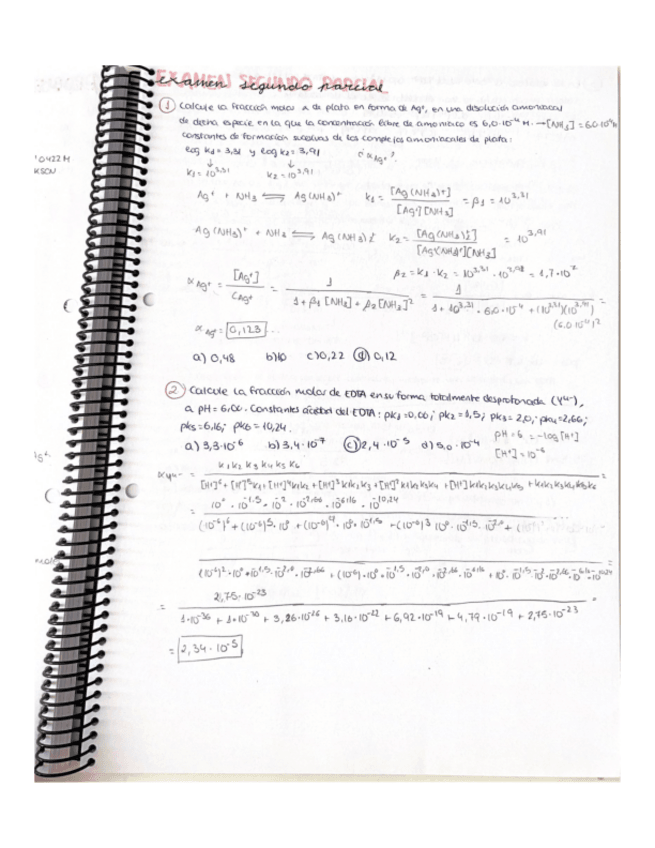 EXAMEN SEGUNDO PARCIAL
examen segundo parcial
① Calcule la fracción molar de plata en forma de Ag⁺, en una disolución amoniacal
de dicha especie en la que la concentración libre de amoniaco es 6,0·10⁻⁴ M. → [NH₃] = 6,0·10⁻⁴
constantes de formación sucesivas de los complejos amoniacales de plata:
log k₁ = 3,31 y log k₂ = 3,91 ¿ αAg⁺ ?
k₁ = 10^3,31 k₂ = 10^3,91
Ag⁺ + NH₃ ⇌ Ag(NH₃)⁺ k₁ = [Ag(NH₃)⁺] / [Ag⁺][NH₃] = β₁ = 10^3,31
Ag(NH₃)⁺ + NH₃ ⇌ Ag(NH₃)₂⁺ k₂ = [Ag(NH₃)₂⁺] / [Ag(NH₃)⁺][NH₃] = 10^3,91
β₂ = k₁ · k₂ = 10^3,31 · 10^3,91 = 1,7·10⁷
αAg⁺ = [Ag⁺] / CAg⁺ = 1 / 1 + β₁[NH₃] + β₂[NH₃]² = 1 / 1 + 10^3,31 · 6,0·10⁻⁴ + (10^3,31)(10^3,91) (6,0·10⁻⁴)² =
αAg⁺ = 0,123...
a) 0,48 b) c) 0,22 ⓓ 0,12
② Calcule la fracción molar de EDTA en su forma totalmente desprotonada (Y⁴⁻),
a pH = 6,00. Constantes del EDTA: pk₁ = 0,00; pk₂ = 1,5; pk₃ = 2,0; pk₄ = 2,66;
pk₅ = 6,16; pk₆ = 10,24.
a) 3,3·10⁻⁶ b) 3,4·10⁻⁷ ⓒ 2,4·10⁻⁵ d) 5,0·10⁻⁴ pH = 6 = -log [H⁺]
[H⁺] = 10⁻⁶
αY⁴⁻ = k₁k₂k₃k₄k₅k₆ / [H⁺]⁶ + [H⁺]⁵k₁ + [H⁺]⁴k₁k₂ + [H⁺]³k₁k₂k₃ + [H⁺]²k₁k₂k₃k₄ + [H⁺]k₁k₂k₃k₄k₅ + k₁k₂k₃k₄k₅k₆ =
= 10⁰ · 10^-1,5 · 10^-2 · 10^-2,66 · 10^-6,16 · 10^-10,24
(10⁻⁶)⁶ + (10⁻⁶)⁵ · 10⁰ + (10⁻⁶)⁴ · 10⁰ · 10^-1,5 + (10⁻⁶)³ · 10⁰ · 10^-1,5 · 10^-2,0 +
(10⁻⁶)² · 10⁰ · 10^-1,5 · 10^-2,0 · 10^-2,66 + (10⁻⁶) · 10⁰ · 10^-1,5 · 10^-2,0 · 10^-2,66 · 10^-6,16 + 10⁰ · 10^-1,5 · 10^-2 · 10^-2,66 · 10^-6,16 · 10^-10,24 =
= 2,75·10⁻²³ / 1·10⁻³⁶ + 1·10⁻³⁰ + 3,16·10⁻²⁶ + 3,16·10⁻²² + 6,92·10⁻¹⁹ + 4,79·10⁻¹⁹ + 2,75·10⁻²³ =
= 2,34·10⁻⁵